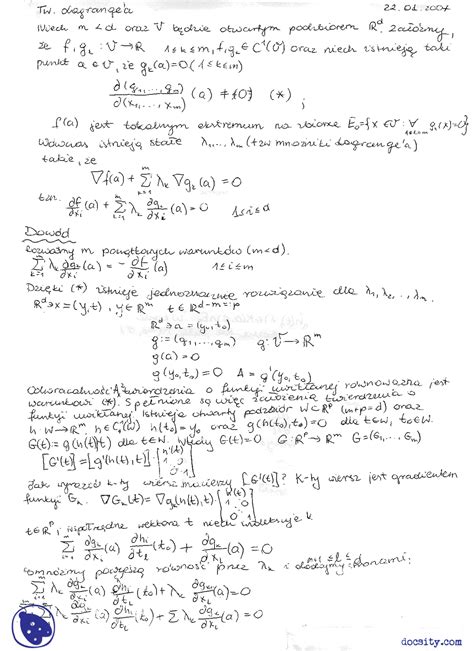 Tw. Lagrange'a 22.01.2007
Niech m < d oraz U będzie otwartym podzbiorem R^d. Załóżmy,
że f, g_k : U → R 1≤k≤m, f, g_k ∈ C^1(U) oraz niech istnieją taki
punkt a ∈ U, że g_k(a)=0 (1≤k≤m)
∂(g_1,...,g_m)/∂(x_1,...,x_m) (a) ≠ {0} (*) ;
f(a) jest lokalnym ekstremum na zbiorze E_0={x∈U: ∀ 1≤i≤m g_i(x)=0}
Wówczas istnieją stałe λ_1,...,λ_m (tzw mnożniki Lagrange'a)
takie, że
∇f(a) + Σ_{k=1}^m λ_k ∇g_k(a) = 0
tzn. ∂f/∂x_i (a) + Σ_{k=1}^m λ_k ∂g_k/∂x_i (a) = 0 1≤i≤d
Dowód
Rozważmy m początkowych warunków (m<d).
Σ λ_k ∂g_k/∂x_i (a) = - ∂f/∂x_i (a) 1≤i≤m
Dzięki (*) istnieje jednoznaczne rozwiązanie dla λ_1, λ_2, ..., λ_m.
R^d ∋ x = (y,t), y ∈ R^m t ∈ R^{d-m=:p}
R^d ∋ a = (y_0,t_0)
g := (g_1,...,g_m) g: U → R^m
g(a) = 0
g(y_0,t_0) = 0 A = g'(y_0,t_0)
Odwracalność A z twierdzenia o funkcji uwikłanej równoważna jest
warunkowi (*). Spełnione są więc założenia twierdzenia o
funkcji uwikłanej. Istnieje otwarty podzbiór W⊂R^p (m+p=d) oraz
h: W→R^m, h∈C^1(W) h(t_0)=y_0 oraz g(h(t_0),t_0)=0 dla t∈W, t_0∈W.
G(t):=g(h(t),t) dla t∈W. Wtedy G(t)=0. G: R^p→R^m G=(G_1,...,G_m)
[G'(t)] = [g'(h(t),t)] · [h'(t) 1 0 0 1]
Jak wyrazić k-ty wiersz macierzy [G'(t)]? K-ty wiersz jest gradientem
funkcji G_k. ∇G_k(t) = ∇g_k(h(t),t) · [h'(t) 1 0 0 1]
t∈R^p i współrzędne wektora t niech indeksuje
Σ_{i=1}^m ∂g_k/∂x_i (a) ∂h_i/∂t_l (t_0) + ∂g_k/∂x_l (a) = 0
pomnóżmy powyższą równość przez λ_k i dodajmy stronami: m+1≤l≤d
Σ_{i=1}^m λ_k ∂g_k/∂x_i (a) ∂h_i/∂t_l (t_0) + λ_k ∂g_k/∂x_l (a) = 0
Σ Σ λ_k ∂g_k/∂x_i (a) ∂h_i/∂t_l (t_0) + Σ λ_k ∂g_k/∂x_l (a) = 0
docsity.com